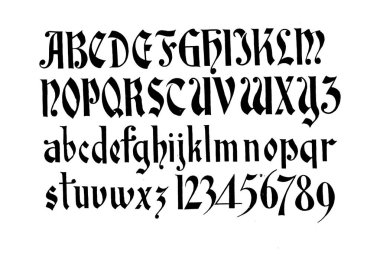 ABCDEFGHIJKLM
NOPQRSTUVWXYZ
abcdefghijklmnopqr
stuvwxz 123456789